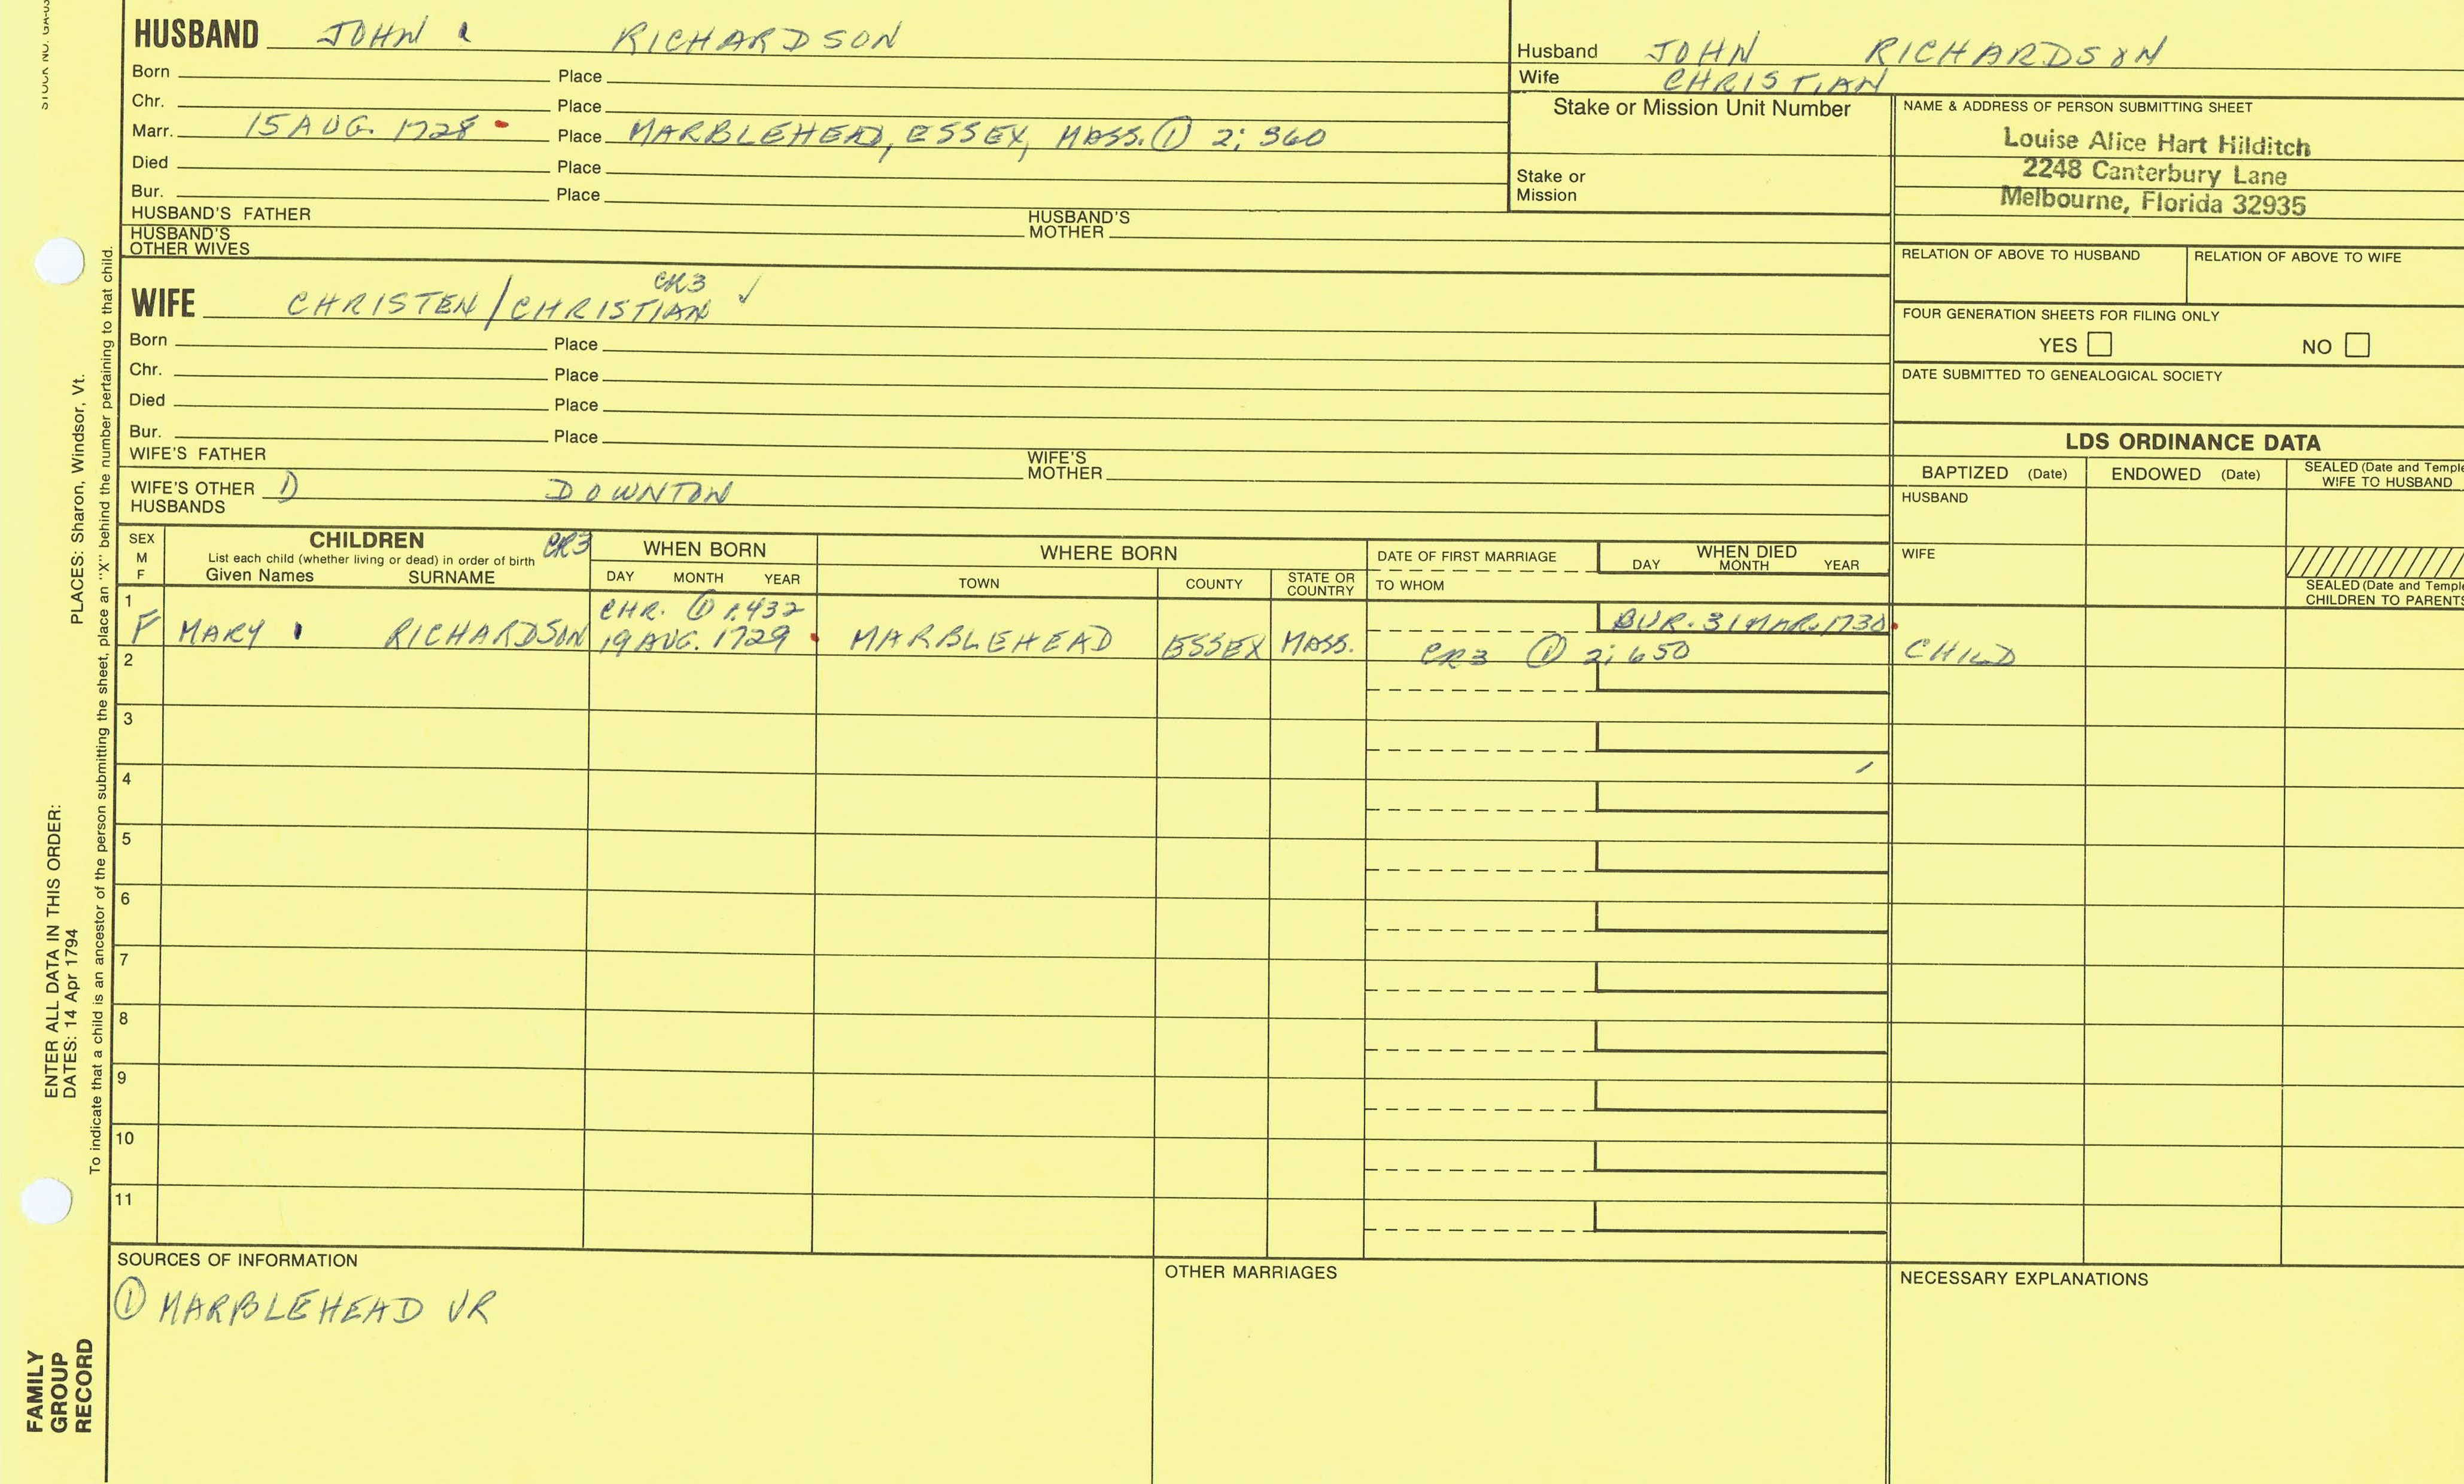 HUSBAND JOHN RICHARDSON
Born Place
Chr. Place
Marr. 15 AUG. 1728 Place MARBLEHEAD, ESSEX, MASS. ① 2; 360
Died Place
Bur. Place
HUSBAND'S FATHER HUSBAND'S MOTHER
HUSBAND'S OTHER WIVES
Husband JOHN RICHARDSON
Wife CHRISTIAN
Stake or Mission Unit Number
Stake or Mission
NAME & ADDRESS OF PERSON SUBMITTING SHEET
Louise Alice Hart Hilditch
2248 Canterbury Lane
Melbourne, Florida 32935
RELATION OF ABOVE TO HUSBAND RELATION OF ABOVE TO WIFE
FOUR GENERATION SHEETS FOR FILING ONLY
YES NO
DATE SUBMITTED TO GENEALOGICAL SOCIETY
CR3
WIFE CHRISTEN/CHRISTIAN ✓
Born Place
Chr. Place
Died Place
Bur. Place
WIFE'S FATHER WIFE'S MOTHER
WIFE'S OTHER HUSBANDS D DOWNTON
LDS ORDINANCE DATA
BAPTIZED (Date) ENDOWED (Date) SEALED (Date and Temple
WIFE TO HUSBAND
HUSBAND
WIFE
SEALED (Date and Temple
CHILDREN TO PARENTS
SEX M F
CHILDREN CR3
List each child (whether living or dead) in order of birth
Given Names SURNAME
WHEN BORN
DAY MONTH YEAR
WHERE BORN
TOWN COUNTY STATE OR COUNTRY
DATE OF FIRST MARRIAGE
TO WHOM
WHEN DIED
DAY MONTH YEAR
1 CHR. ① 1.432 BUR. 31 MAR. 1730
F MARY RICHARDSON 19 AUG. 1729 MARBLEHEAD ESSEX MASS. CR3 ① 2; 650 CHILD
2
3
4
5
6
7
8
9
10
11
SOURCES OF INFORMATION
① MARBLEHEAD VR
OTHER MARRIAGES
NECESSARY EXPLANATIONS
PLACES: Sharon, Windsor, Vt.
ENTER ALL DATA IN THIS ORDER:
DATES: 14 Apr 1794
To indicate that a child is an ancestor of the person submitting the sheet, place an "X" behind the number pertaining to that child.
FAMILY
GROUP
RECORD